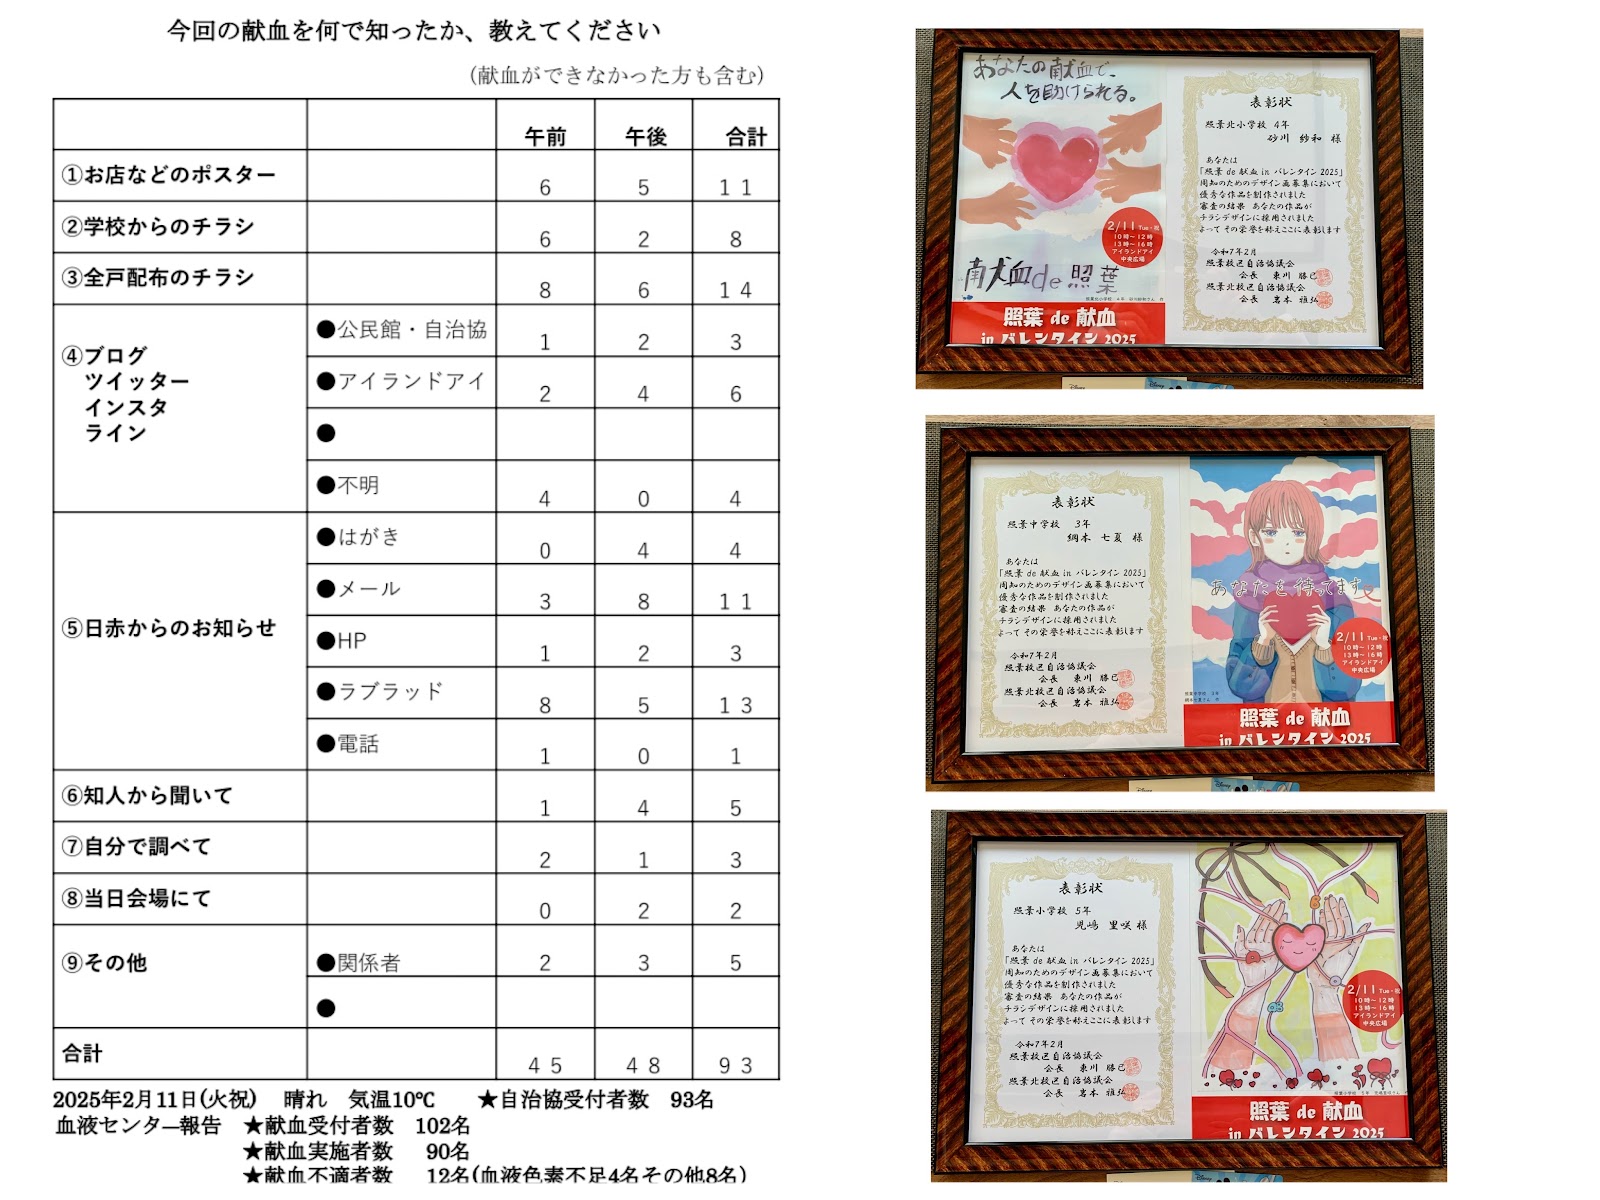 今回の献血を何で知ったか、教えてください
（献血ができなかった方も含む）
午前 午後 合計
①お店などのポスター 6 5 11
②学校からのチラシ 6 2 8
③全戸配布のチラシ 8 6 14
④ブログ
ツイッター
インスタ
ライン
●公民館・自治協 1 2 3
●アイランドアイ 2 4 6
●
●不明 4 0 4
⑤日赤からのお知らせ
●はがき 0 4 4
●メール 3 8 11
●HP 1 2 3
●ラブラッド 8 5 13
●電話 1 0 1
⑥知人から聞いて 1 4 5
⑦自分で調べて 2 1 3
⑧当日会場にて 0 2 2
⑨その他
●関係者 2 3 5
●
合計 45 48 93
2025年2月11日(火祝) 晴れ 気温10℃ ★自治協受付者数 93名
血液センター報告 ★献血受付者数 102名
★献血実施者数 90名
★献血不適者数 12名(血液色素不足4名その他8名)
あなたの献血で、
人を助けられる。
2/11 Tue・祝
10時～12時
13時～16時
アイランドアイ
中央広場
献血de照葉
照葉 de 献血
in バレンタイン 2025
表彰状
照葉北小学校 4年
砂川 紗和 様
あなたは
「照葉 de 献血 in バレンタイン 2025」
周知のためのデザイン画募集において
優秀な作品を制作されました
審査の結果 あなたの作品が
チラシデザインに採用されました
よって その栄誉を称えここに表彰します
令和7年2月
照葉校区自治協議会
会長 東川 勝己
照葉北校区自治協議会
会長 岩本 雅弘
Disney
表彰状
照葉中学校 3年
綱本 七夏 様
あなたは
「照葉 de 献血 in バレンタイン 2025」
周知のためのデザイン画募集において
優秀な作品を制作されました
審査の結果 あなたの作品が
チラシデザインに採用されました
よって その栄誉を称えここに表彰します
令和7年2月
照葉校区自治協議会
会長 東川 勝己
照葉北校区自治協議会
会長 岩本 雅弘
あなたを待ってます
2/11 Tue・祝
10時～12時
13時～16時
アイランドアイ
中央広場
照葉 de 献血
in バレンタイン 2025
Disney
表彰状
照葉小学校 5年
児嶋 里咲 様
あなたは
「照葉 de 献血 in バレンタイン 2025」
周知のためのデザイン画募集において
優秀な作品を制作されました
審査の結果 あなたの作品が
チラシデザインに採用されました
よって その栄誉を称えここに表彰します
令和7年2月
照葉校区自治協議会
会長 東川 勝己
照葉北校区自治協議会
会長 岩本 雅弘
2/11 Tue・祝
10時～12時
13時～16時
アイランドアイ
中央広場
照葉 de 献血
in バレンタイン 2025